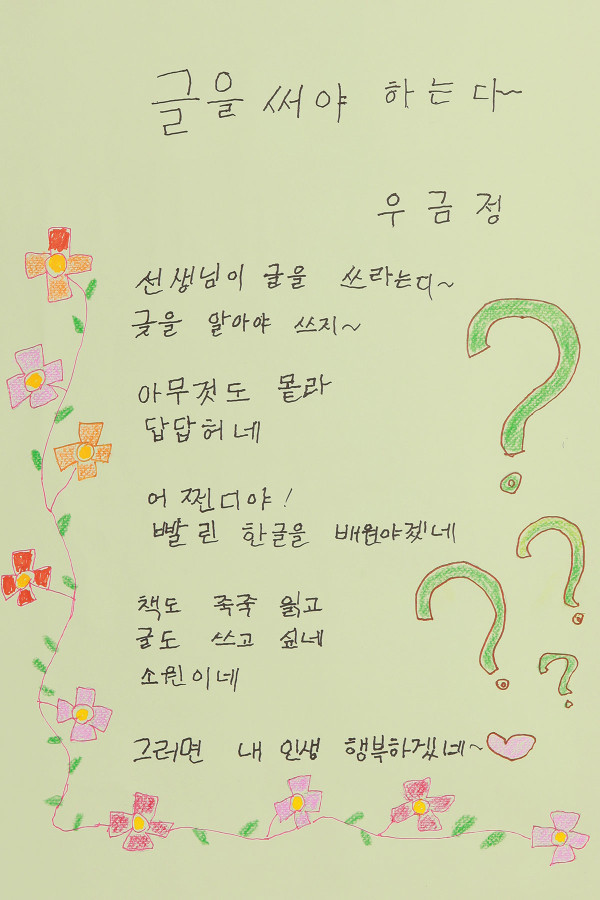 글을 써야 하는디~
우금정
선생님이 글을 쓰라는디~
긎을 알아야 쓰지~
아무것도 몰라
답답허네
어쩐디야!
빨린 한글을 배워야겠네
책도 죽죽 읽고
글도 쓰고 싶네
소원이네
그러면 내 인생 행복하겠네~